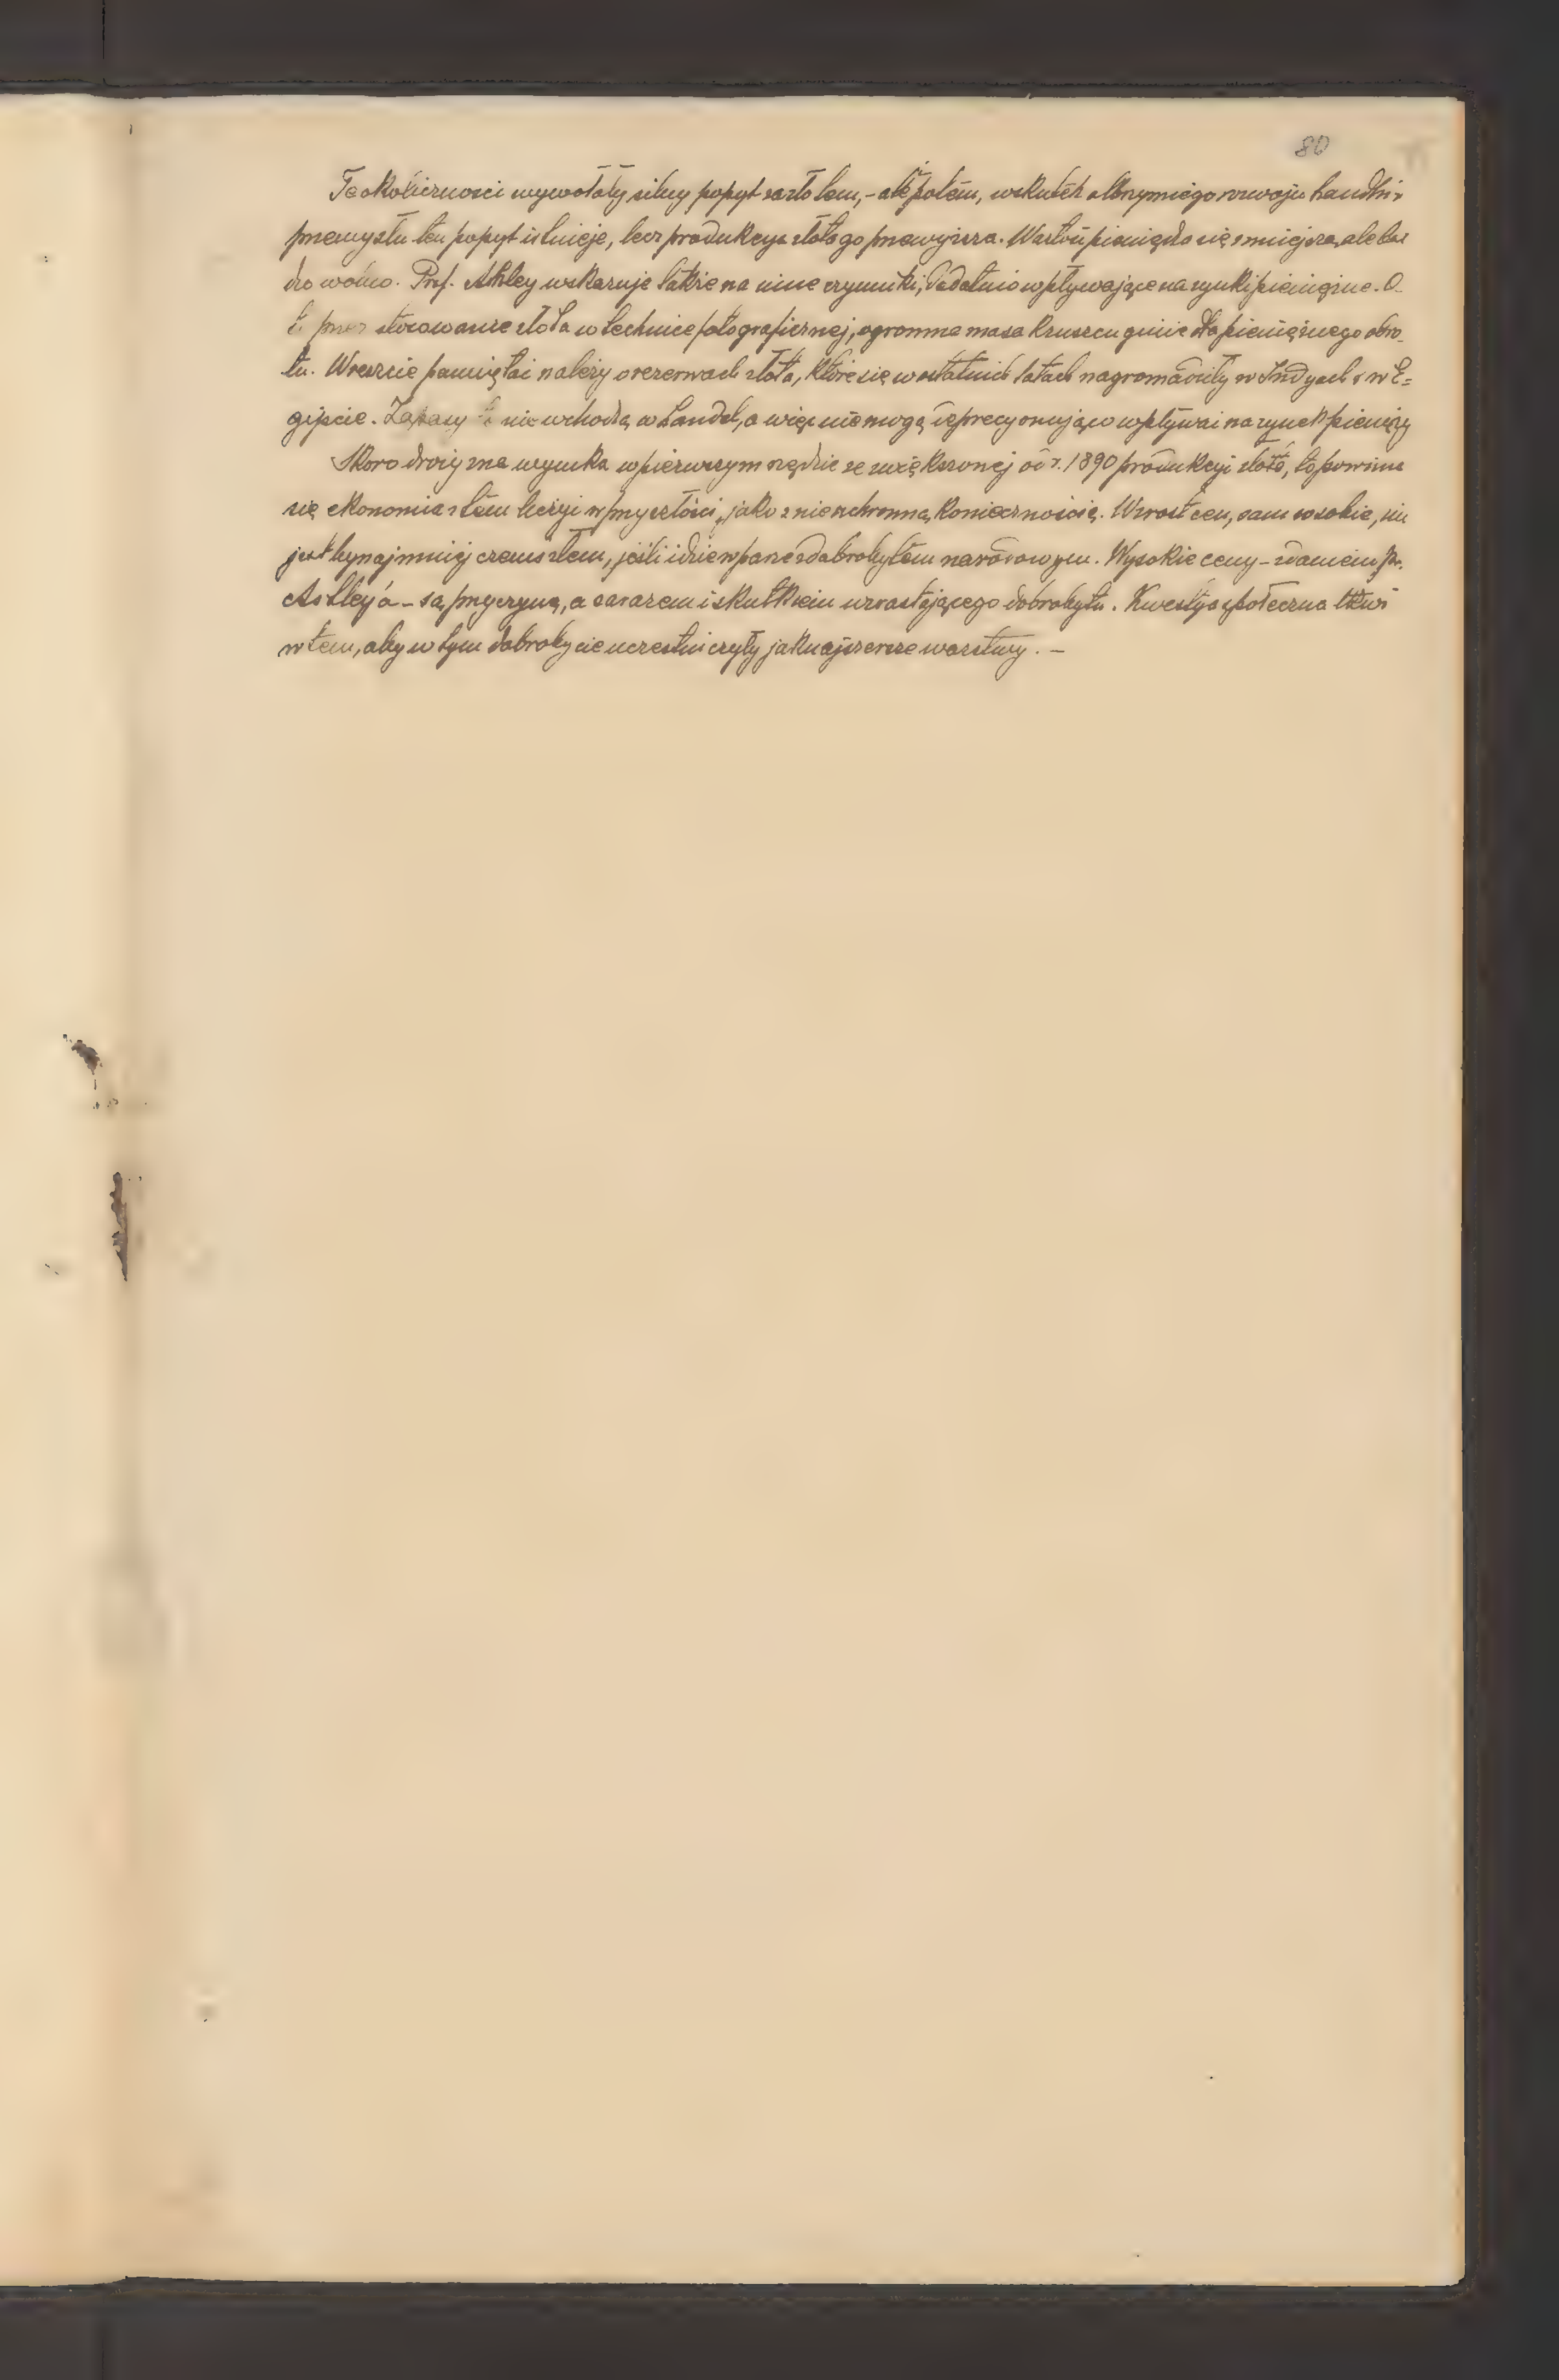 80
Te okoliczności wywołały silny popyt za złotem, - ale potem, wskutek olbrzymiego rozwoju handlu i
przemysłu ten popyt istnieje, lecz produkcya złota go przewyższa. Wartość pieniądza się zmniejsza, ale bar
dzo wolno. Prof. Ashley wskazuje także na inne czynniki, dodatnio wpływające na rynki pieniężne. O-
to przez stosowanie złota w technice fotograficznej, ogromna masa kruszcu ginie dla pieniężnego obro-
tu. Wreszcie pamiętać należy o rezerwach złota, które się w ostatnich latach nagromadziły w Indyach i w E=
gipcie. Zapasy te nie wchodzą w handel, a więc nie mogą deprecyonująco wpływać na rynek pieniężny
Skoro drożyzna wynika w pierwszym rzędzie ze zwiększonej od r. 1890 produkcyi złota, to powinna
się ekonomia z tem liczyć w przyszłości, jako z nieuchronną koniecznością. Wzrost cen, sam w sobie, nie
jest bynajmniej czemś złem, jeśli idzie w parze z dobrobytem narodowym. Wysokie ceny - zdaniem p.
Ashley'a - są przyczyną, a zarazem i skutkiem wzrastającego dobrobytu. Kwestya społeczna tkwi
w tem, aby w tym dobrobycie uczestniczyły jaknajszersze warstwy. -